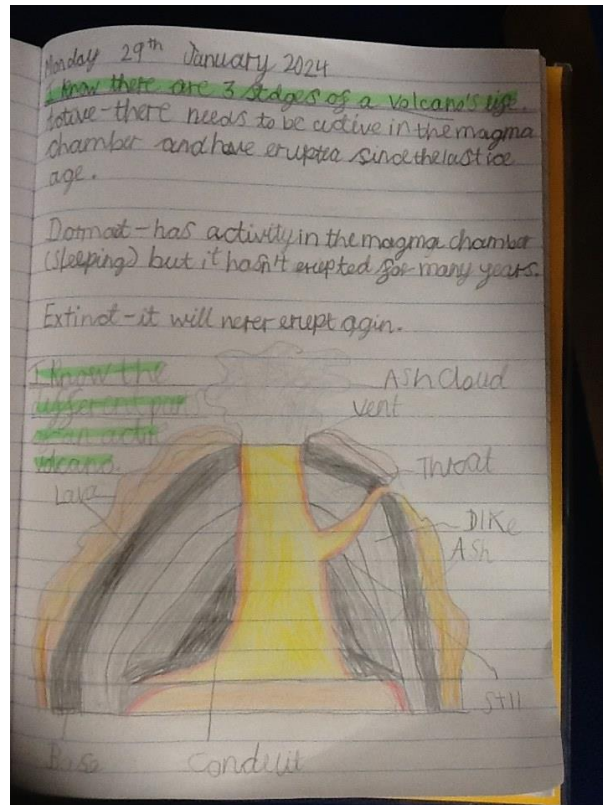 Monday 29th January 2024
I know there are 3 stages of a volcano's life.
Active-there needs to be active in the magma
chamber and have erupted since the last ice
age.
Domat-has activity in the magma chamber
(sleeping) but it hasn't erupted for many years.
Extinct-it will never erupt agin.
I know the
different par
of an activ
volcano.
Ash Cloud
vent
Throat
Lava
DIKe
Ash
Sill
Base
Conduit